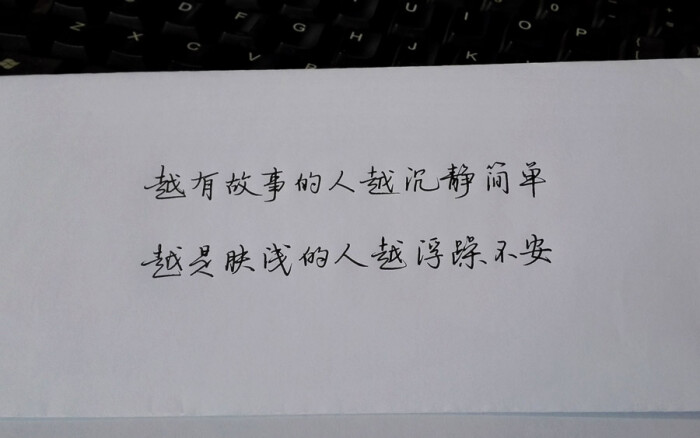 越有故事的人越沉静简单
越是肤浅的人越浮躁不安